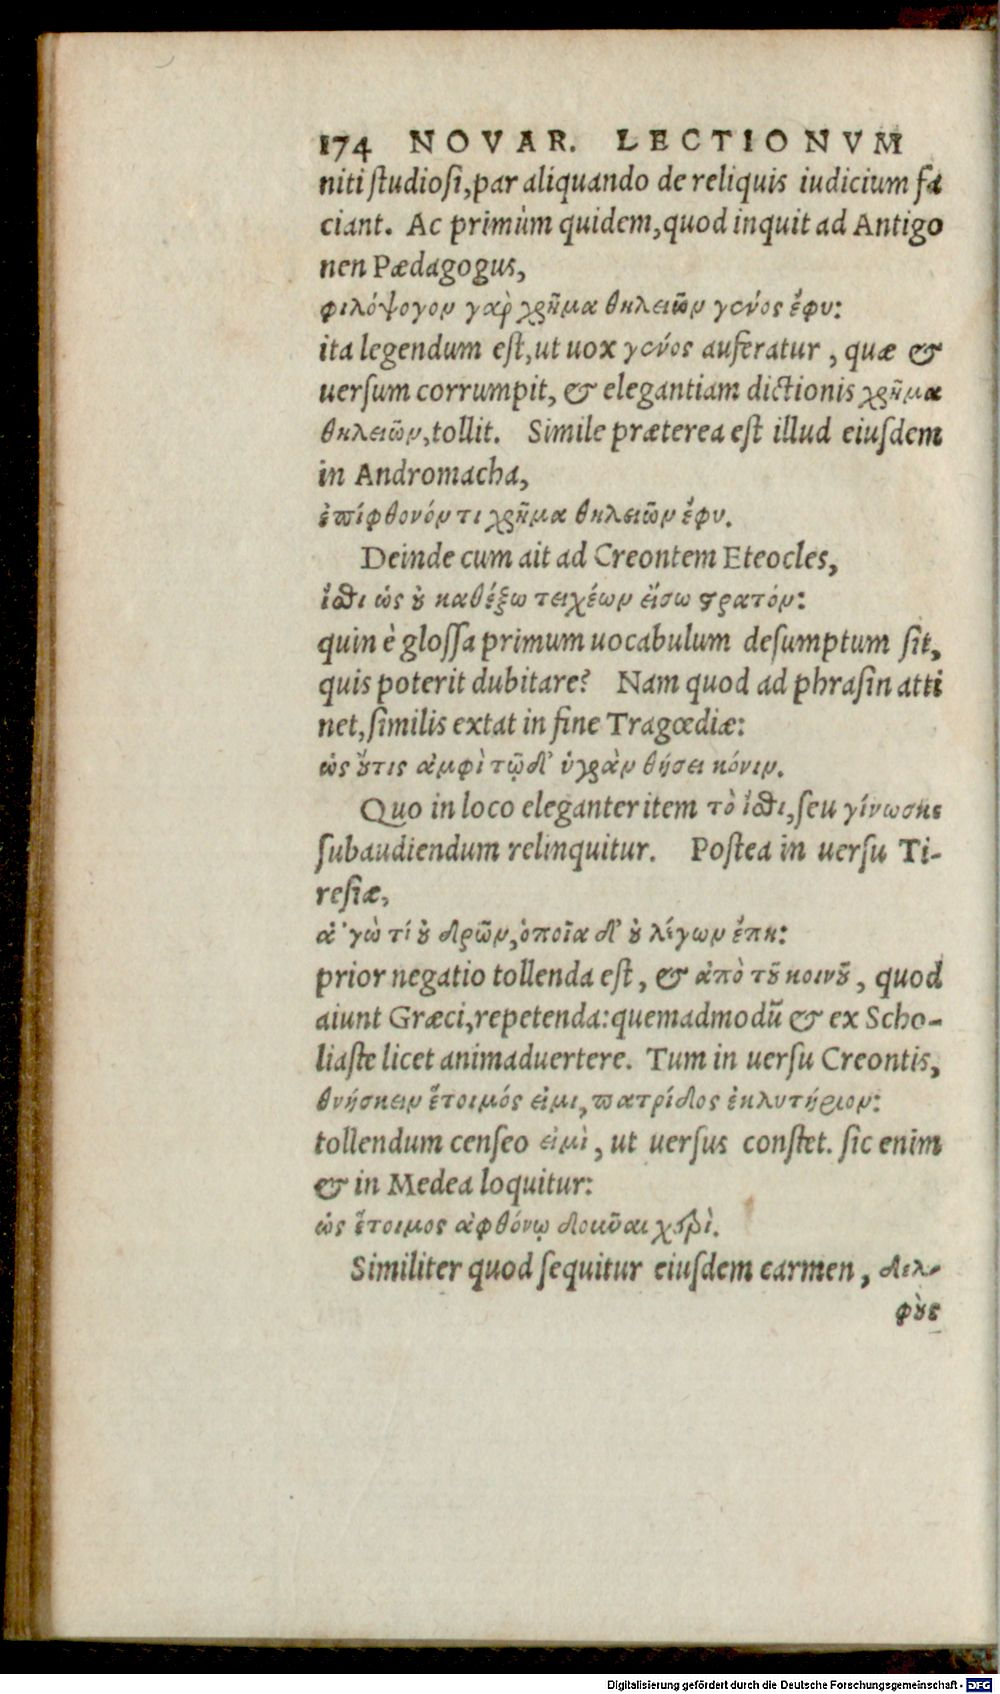 174 NOVAR. LECTIONVM
niti studiosi, par aliquando de reliquis iudicium fa
ciant. Ac primùm quidem, quod inquit ad Antigo
nen Pædagogus,
φιλόψογον γαρ̀ χρῆμα θηλειῶν γένος ἔφυ:
ita legendum est, ut uox γένος auferatur, quæ &
uersum corrumpit, & elegantiam dictionis χρῆμα
θηλειῶν, tollit. Simile præterea est illud eiusdem
in Andromacha,
ἐπίφθονόν τι χρῆμα θηλειῶν ἔφυ.
Deinde cum ait ad Creontem Eteocles,
ἴσθι ὡς ὀυ καθέξω τειχέων ἔισω στρατόν:
quin è glossa primum uocabulum desumptum sit,
quis poterit dubitare? Nam quod ad phrasin atti
net, similis extat in fine Tragœdiæ:
ὡς ὄυτις ἀμφὶ τῷδ' ὑγρὰν θήσει κόνιν.
Quo in loco eleganter item τὸ ἴσθι, seu γίνωσκε
subaudiendum relinquitur. Postea in uersu Ti-
resiæ,
ἀ'γὼ τί ὀυ δρῶν, ὁποῖα δ' ὀυ λέγων ἔπη:
prior negatio tollenda est, & ἀπὸ τοῦ κοινοῦ, quod
aiunt Græci, repetenda: quemadmodū & ex Scho-
liaste licet animaduertere. Tum in uersu Creontis,
θνήσκειν ἕτοιμός ἐιμι, πατρίδος ἐκλυτήριον:
tollendum censeo ἐιμὶ, ut uersus constet. sic enim
& in Medea loquitur:
ὡς ἕτοιμος ἀφθόνῳ δοῦναι χερὶ.
Similiter quod sequitur eiusdem carmen, δελ-
φοὺς
Digitalisierung gefördert durch die Deutsche Forschungsgemeinschaft - DFG